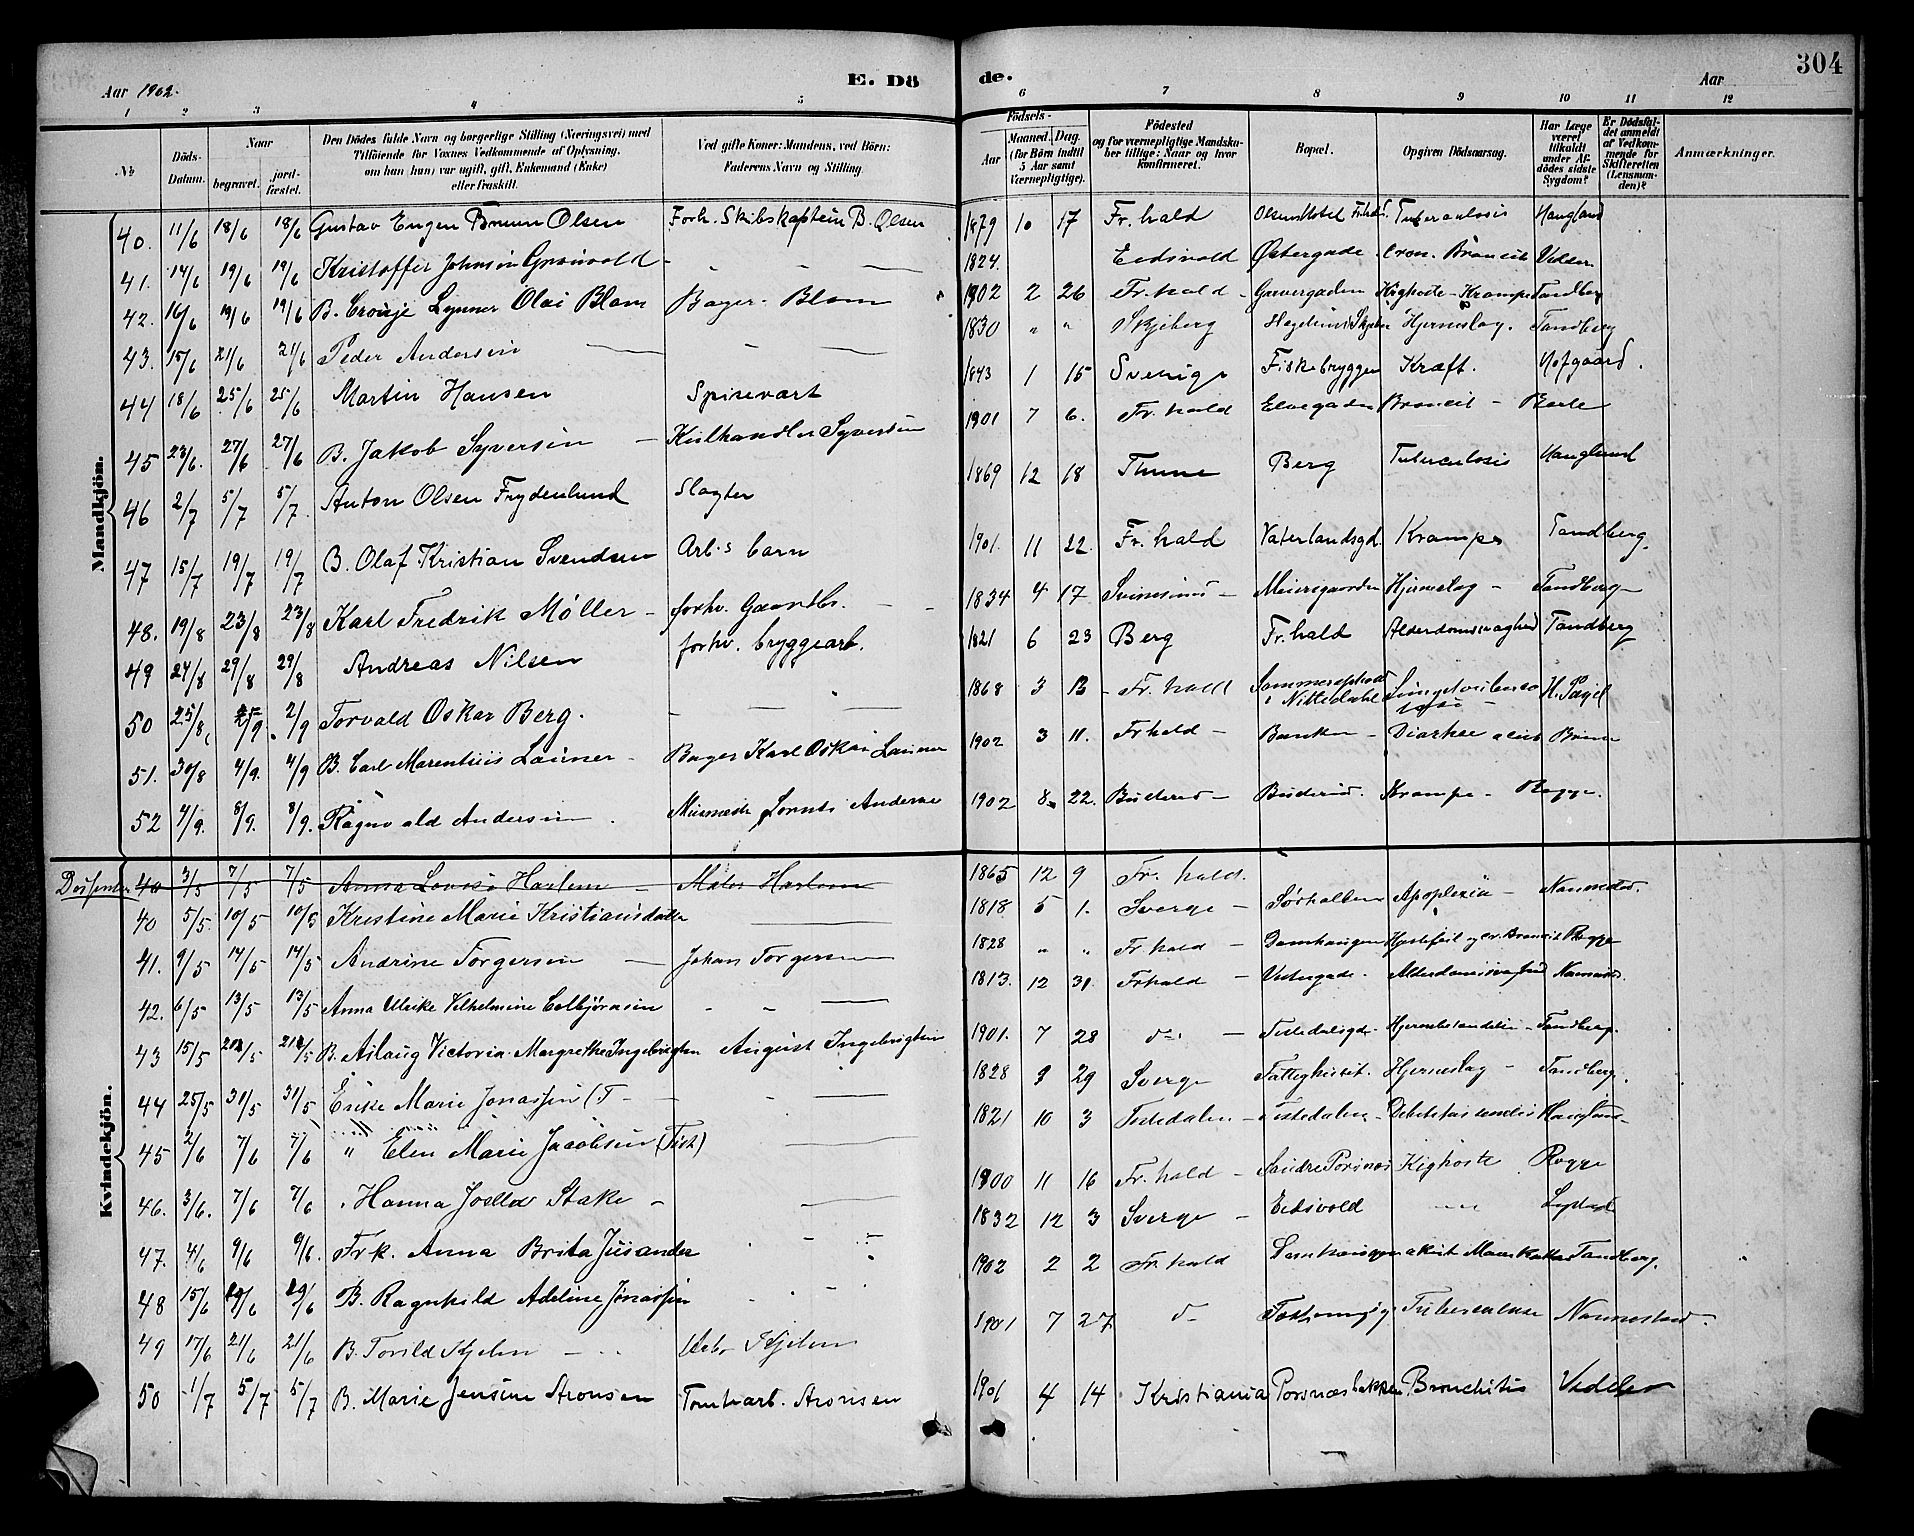 Aar 1902.
E. Dö
de.
Aar
304
1 2 3 4 5 6 7 8 9 10 11 12
№
Döds-Datum.
Naar
begravet.
jord-fæstet.
Den Dödes fulde Navn og borgerlige Stilling (Næringsvei) med
Tilföiende for Voxnes Vedkommende af Oplysning,
om han (hun) var ugift, gift, Enkemand (Enke)
eller fraskilt.
Ved gifte Koner: Mandens, ved Börn:
Faderens Navn og Stilling.
Födsels-
Aar
Maaned. Dag.
(for Börn indtil
5 Aar samt
Værnepligtige).
Födested
og for værnepligtige Mandska-
ber tillige: Naar og hvor
konfirmeret.
Bopæl.
Opgiven Dödsaarsag.
Har Læge
været
tilkaldt
under Af-
dödes sidste
Sygdom?
Er Dödsfal-
det anmeldt
af Vedkom-
mende for
Skifteretten
(Lensman-
den)?
Anmærkninger.
Mandkjön.
40. 11/6 18/6 18/6 Gustav Eugen Bruun Olsen Forh. Skibskaptein B. Olsen 1879 10 17 Fr.hald Tuberculosis Haugland
41. 14/6 19/6 19/6 Kristoffer Johnsen 1824. Eidsvold Østergade Cron. Broncit
42. 16/6 19/6 19/6 B. Cronje Olai Blom Bager Blom 1902 2 26 Fr.hald Kighoste - Krampe Tandberg
43. 15/6 21/6 21/6 Peder Andersen 1830 " " Skjeberg Hjerneslag. Tandberg
44 18/6 25/6 25/6 Martin Hansen Spisevært 1843 1 15 Sverige Fiskebryggen Kræft. Hofgaard.
45 23/6. 27/6 27/6 B. Jakob Syversen Kulhandler Syversen 1901 7 6. Fr.hald Elvegaden Broncit
46 2/7 5/7 5/7 Anton Olsen Frydenlund Slagter 1869 12 18 Thune Berg Tuberculosis Haugland
47 15/7 19/7 19/7 B. Olaf Kristian Svendsen Arb.s barn 1901. 11 22. Fr.hald Vaterlandsgd. Krampe Tandberg.
48. 19/8 23/8 23/8 Karl Fredrik Møller forhv. Gaardbr. 1834 4 17 Svinesund Meiersgaarden Hjerneslag Tandberg
49 24/8 29/8 29/8 Andreas Nilsen forhv. bryggearb. 1821 6 23 Berg Fr.hald Alderdomssvaghed Tandberg
50 25/8 2/9 2/9 Torvald Oskar Berg. 1868 3 Fr.hald i Nittedalen
51. 30/8 4/9. 4/9 B. Carl Marentius Launer Bager Karl Oskar Launer 1902 3 11. Frhald Banken
52 4/9. 8/9. 8/9. Ragnvald Andersen Andersen 1902 8 22. Buderød Buderød. Krampe Rogge.
Kvindekjön.
40 3/5 7/5 7/5 Anna Lovise 1865 12 9 Fr.hald.
40 5/5. 10/5 10/5 Kristine Marie Kristiansdatter 1818 5 1. Sverge Apoplexia Nannestad.
41. 9/5 14/5 14/5 Andrine Torgersen Johan Torgersen 1828 " " Fr.hald Damhaugen Rogge
42. 6/5 13/5 13/5 Anna Ulrike Vilhelmine Colbjørnsen 1813. 12 31. Frhald Vestergade. Alderdomssvaghed
43 15/5 B. Aslaug Victoria Margrethe Ingebrigtsen August Ingebrigtsen 1901. 7 28 Tistedalsgd. Tandberg.
44 25/5 31/5 31/5 Enke Marie Jonassen 1828 9 29 Sverge Fattighuset. Hjerneslag Tandberg.
45 2/6 7/6 7/6 " Elen Marie Jacobsen (Fist) 1821 10 3 Tistedalen Tistedalen
46. 3/6. 7/6 7/6 Hanna Stake 1900 11 16 Fr.hald Kighoste Rogge
47. 4/6 9/6 9/6. Frk. Anna Brita Jusander 1832 12 3 Sverge Eidsvold
48 15/6 B. Ragnhild Adeline Jonassen 1902 2 2 Fr.hald Tandberg.
49 17/6 21/6 21/6 B. Torild Kjelen 1901 7 27 Tuberculose Nannestad.
50 1/7 5/7 5/7 B. Marie Jensine Aronsen Tomtearb. Aronsen 1901 4 14 Kristiania Porsnæsbakken Bronchitis